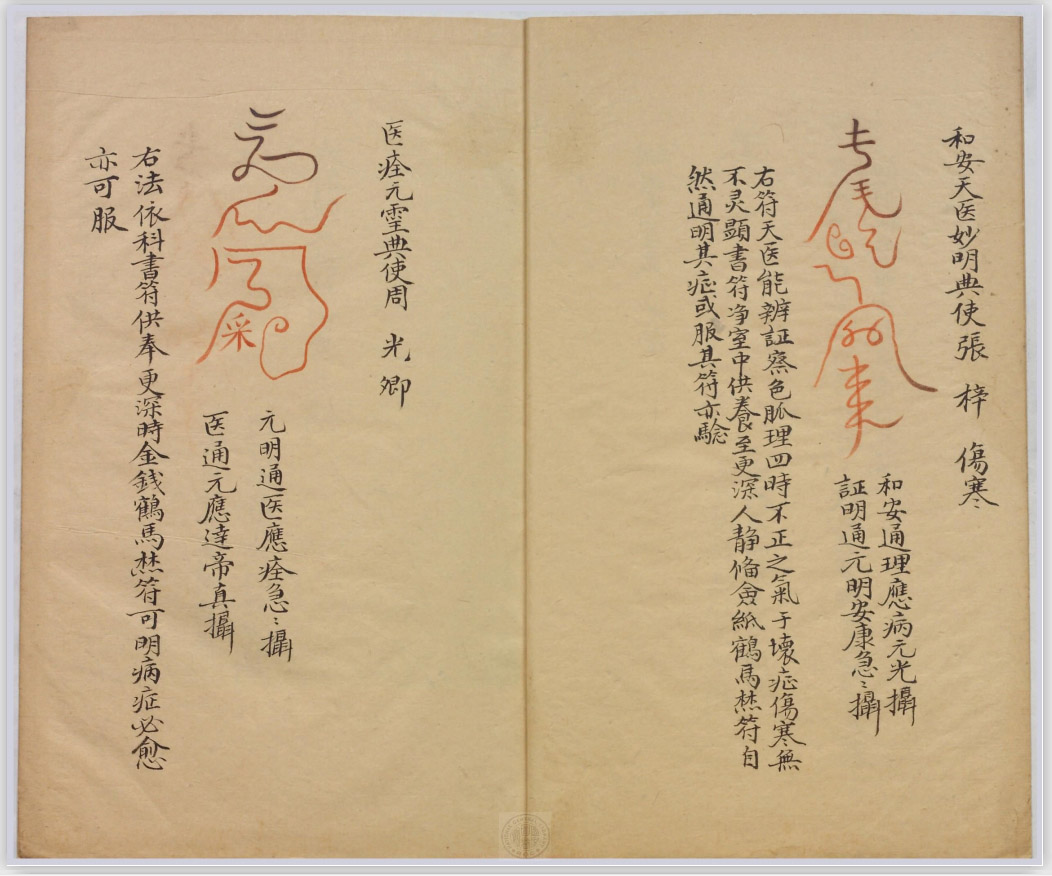 和安天医妙明典使張 梓 傷寒
和安通理應病元光攝
証明通元明安康急〻攝
右符天医能辨証察色脈理四時不正之氣于壞症傷寒無
不灵顯書符净室中供養至更深人静俻金紙鶴馬焚符自
然通明其症或服其符亦騐
医痊元霊典使周 光 卿
元明通医應痊急〻攝
医通元應達帝真攝
右法依科書符供奉更深時金錢鶴馬焚符可明病症必愈
亦可服